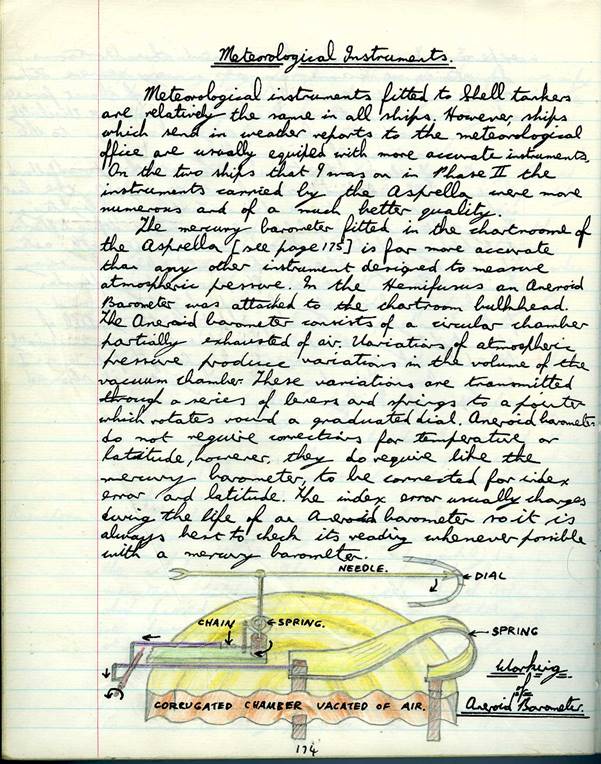 Meteorological Instruments.
Meteorological instruments fitted to Shell tankers
are relatively the same in all ships. However, ships
which send in weather reports to the meteorological
office are usually equiped with more accurate instruments.
On the two ships that I was on in Phase II the
instruments carried by the Asprella were more
numerous and of a much better quality.
The mercury barometer fitted in the chartroom of
the Asprella [see page 175] is far more accurate
than any other instrument designed to measure
atmospheric pressure. In the Hemifusus an Aneroid
Barometer was attached to the chartroom bulkhead.
The Aneroid barometer consists of a circular chamber
partially exhausted of air. Variations of atmospheric
pressure produce variations in the volume of the
vacuum chamber. These variations are transmitted
through a series of levers and springs to a pointer
which rotates round a graduated dial. Aneroid barometers
do not require corrections for temperature or
latitude, however, they do require like the
mercury barometer, to be corrected for index
error and latitude. The index error usually changes
during the life of an Aneroid barometer so it is
always best to check its reading whenever possible
with a mercury barometer.
NEEDLE.
DIAL
CHAIN
SPRING.
SPRING
Working
of
Aneroid Barometer.
CORRUGATED CHAMBER VACATED OF AIR.
174